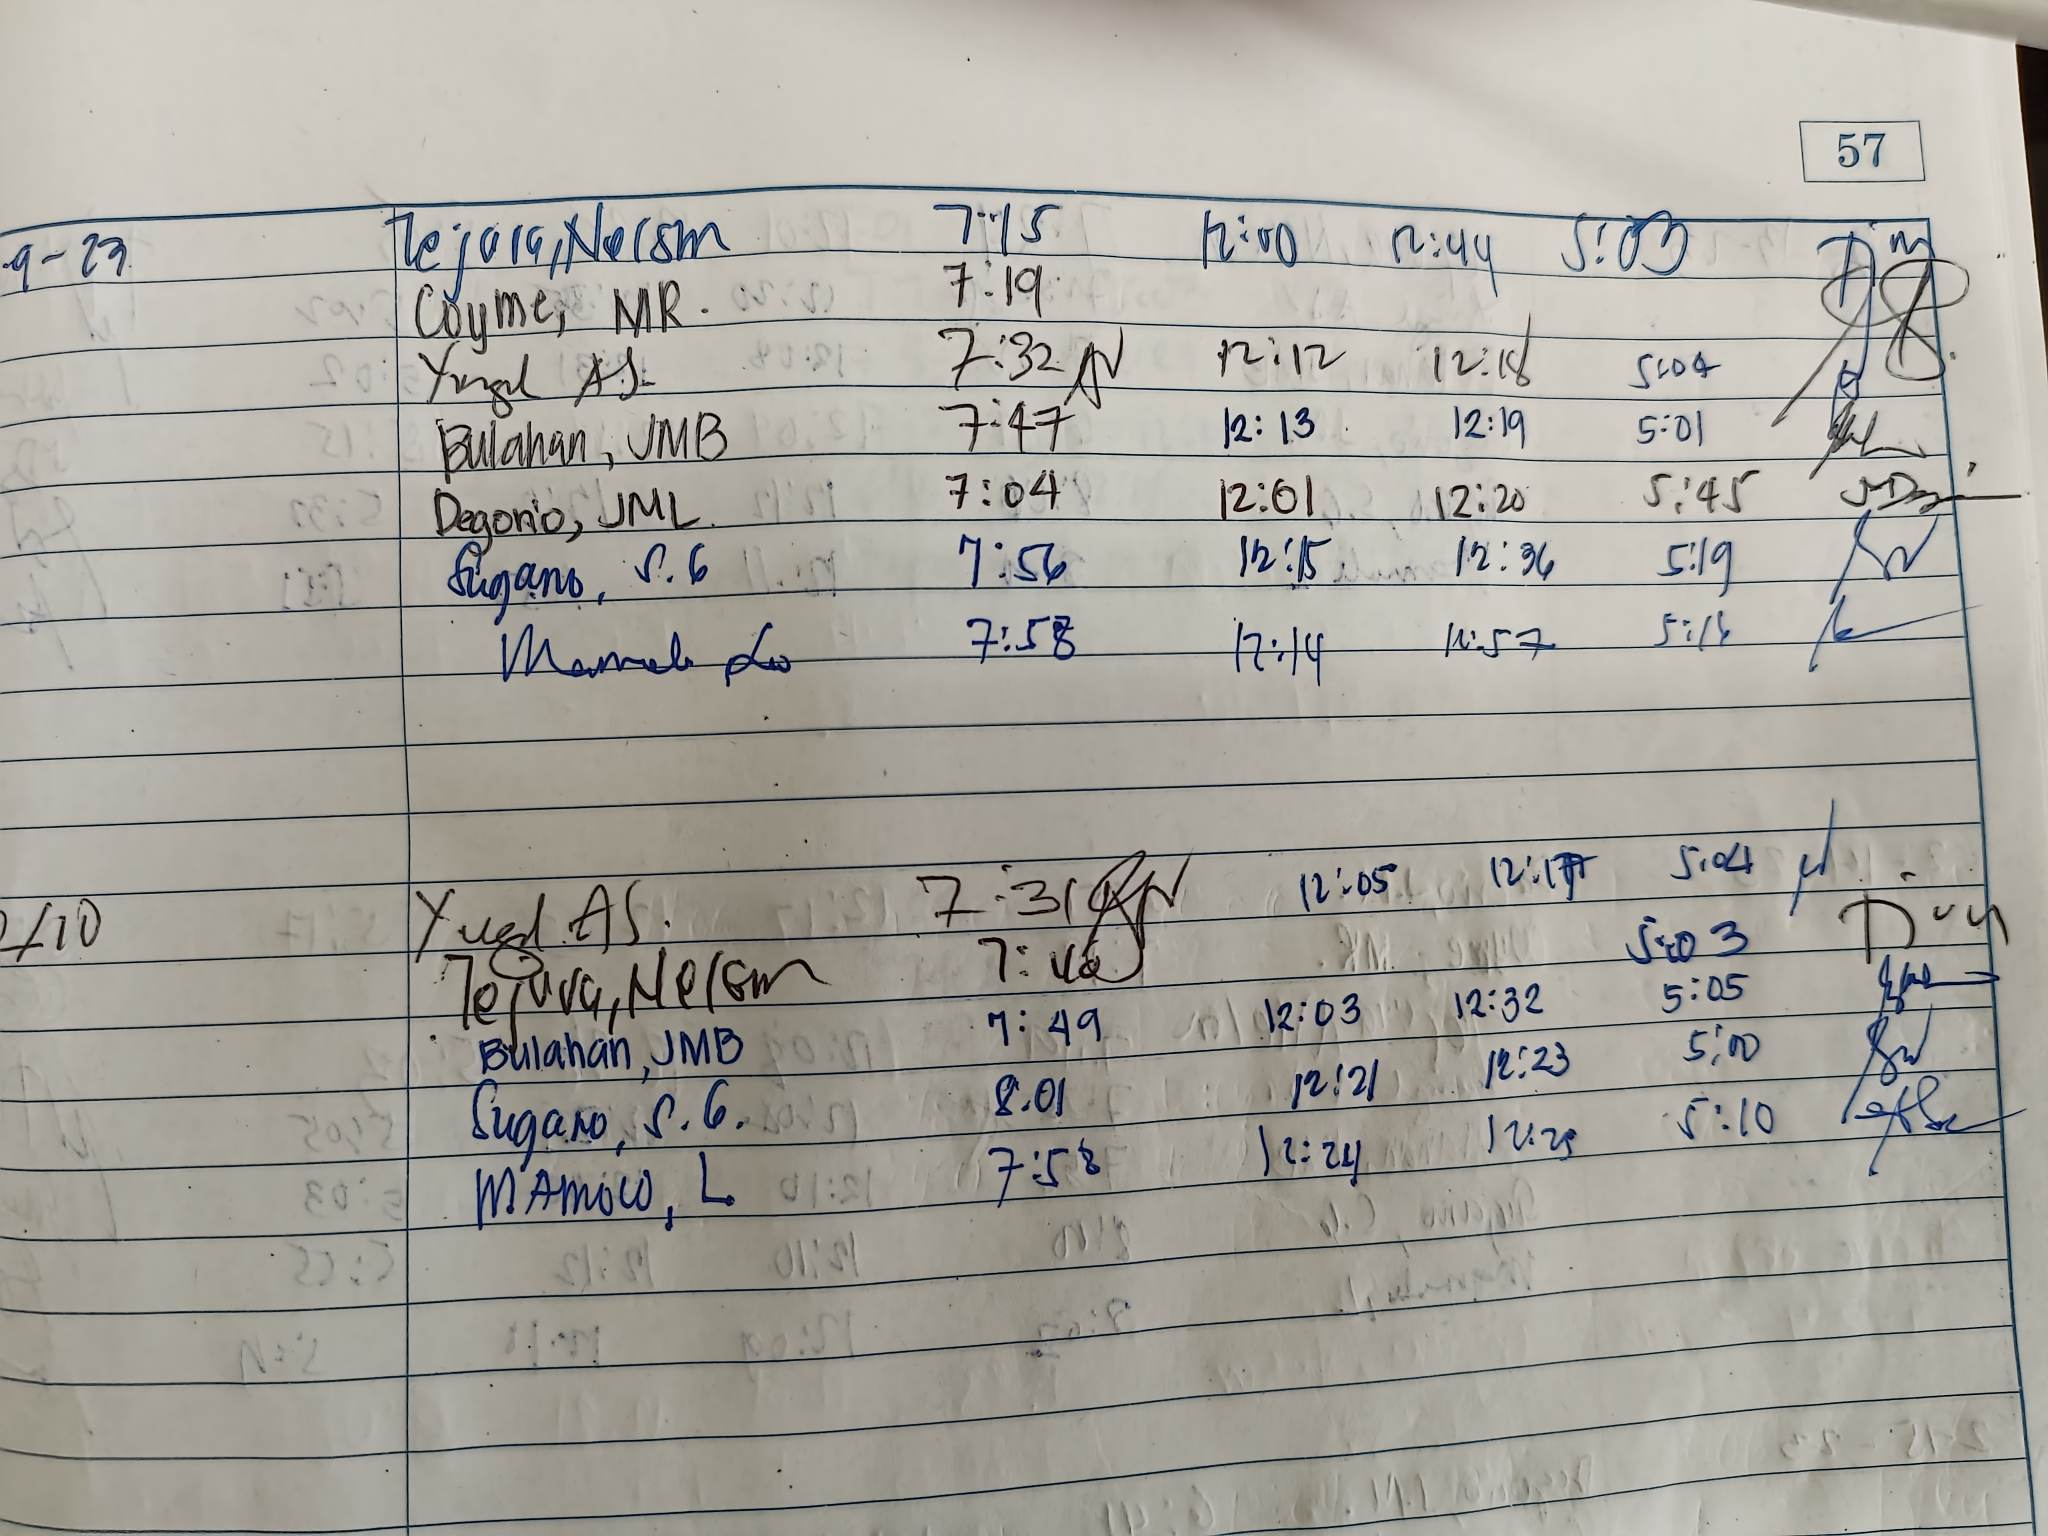 57
9-23 Tejura, Nelson 7:15 12:00 12:44 5:03
Coyme, MR. 7:19
AS. 7:32 12:12 12:18 5:04
Bulahan, JMB 7:47 12:13 12:19 5:01
Degorio, JML 7:04 12:01 12:20 5:45
Sugano, S.G 7:56 12:15 12:36 5:19
7:58 12:14 12:57 5:18
/10 AS. 7:31 12:05 12:17 5:04
Tejura, Nelson 7:46 5:03
Bulahan, JMB 7:49 12:03 12:32 5:05
Sugano, S.G. 8:01 12:21 12:23 5:00
MAmoco, L 7:58 12:24 12:25 5:10